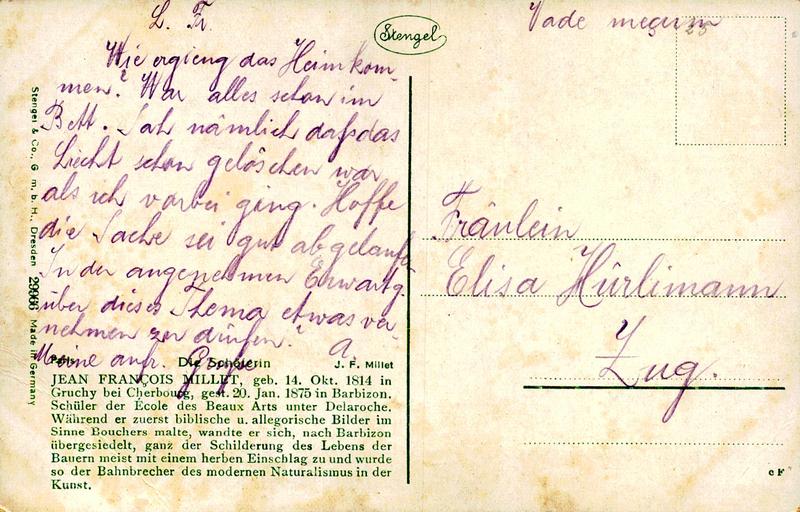 L. Fr.
Wie ergieng das Heimkom-
men? War alles schon im
Bett. Sah nämlich dass das
Liecht schon gelöschen war
als ich vorbei ging. Hoffe
die Sache sei gut abgelaufen
In der angenehmen Erwartg.
über dieses Thema etwas ver-
nehmen zu dürfen?
Meine aufr. Grüsse A.
Stengel
Vade mecum
Fräulein
Elisa Hürlimann
Zug.
Stengel & Co., G. m. b. H., Dresden 29906 Made in Germany
Paris Die Schäferin J. F. Millet
JEAN FRANÇOIS MILLET, geb. 14. Okt. 1814 in
Gruchy bei Cherbourg, gest. 20. Jan. 1875 in Barbizon.
Schüler der École des Beaux Arts unter Delaroche.
Während er zuerst biblische u. allegorische Bilder im
Sinne Bouchers malte, wandte er sich, nach Barbizon
übergesiedelt, ganz der Schilderung des Lebens der
Bauern meist mit einem herben Einschlag zu und wurde
so der Bahnbrecher des modernen Naturalismus in der
Kunst.
c F